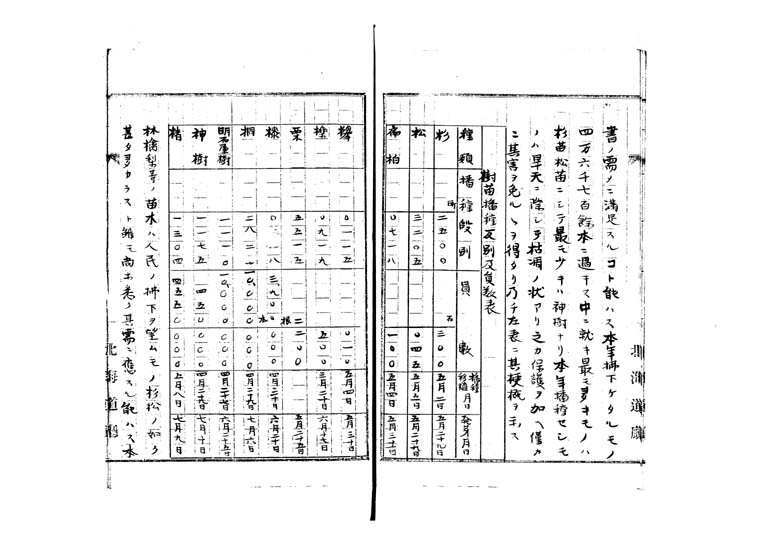 書ノ需メニ満足スルコト能ハス本年拂下ケタルモノ
四万六千七百餘本ニ過キス中ニ就キ最モ多キモノハ
杉苗松苗ニシテ最モ少キハ神樹ナリ本年播種セシモ
ノハ旱天ニ際シ枯凋ノ状アリ之カ保護ヲ加ヘ僅カ
ニ其害ヲ免ルヽヲ得タリ乃チ左表ニ其梗概ヲ示ス
樹苗播種反別及員数表
種類 播種段別 員数 月日 発芽月日
杉 二五〇〇 三〇〇 五月二日 五月二十九日
松 三二〇五 〇四五 五月五日 五月二十日
扁柏 〇七一八 一〇〇 五月四日 五月二十日
欅 〇一一五 〇一〇 五月四日 五月三十日
〇九一九 五〇〇 三月二十日 六月十七日
栗 五五一五 二二〇〇 五月二十五日
漆 三九〇〇〇〇〇 六月二十日
桐 二八二一 一〇〇〇〇〇〇 四月二十九日 七月六日
明石屋樹 一一一〇 一〇〇〇〇〇〇 四月二十七日 六月二十五日
神樹 一一七五 一四五〇〇〇〇 四月二十九日 七月十日
楮 一三〇四 四五五〇〇〇〇 五月八日 七月九日
林檎梨等ノ苗木ハ人民ノ拂下ヲ望ムモノ杉松ノ如ク
甚タ多カラスト雖モ尚ホ悉ク其需ニ應スル能ハス本
北海道廳
北海道廳